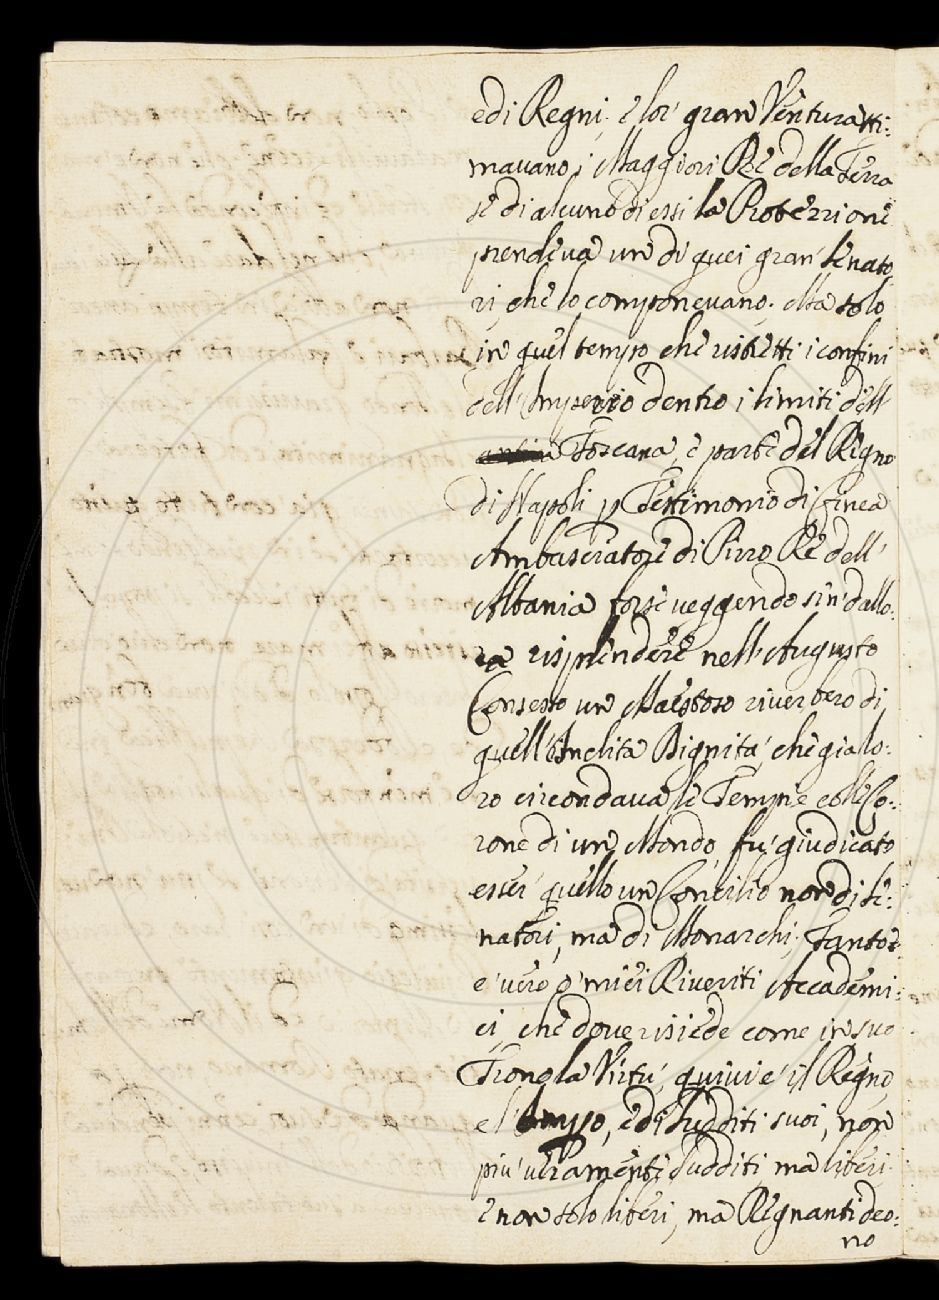 e di Regni; e lor' gran Ventura sti:
mavano i Maggiori Rè della Terra
se di alcuno di essi la Protezzione
prendeva un di quei gran' Senato
ri, che lo componevano. Ma solo
in quel tempo che ristretti i confini
dell'Imperio dentro i limiti dell
Toscana, e parte del Regno
di Napoli p Testimonio di Cinea
Ambasciatore di Pirro Rè dell'
Albania forse veggendo sin' dallo:
ra risplendere nell'Augusto
Consesso un Maestoso riverbero di
quell'Inclita Dignità, che gia lo:
ro circondava le Tempie colle Co:
rone di un Mondo, fu' giudicato
esser' quello un Concilio non di Se:
natori, ma di Monarchi; Tanto
e' vero o' miei Riveriti Accademi:
ci, che dove risiede come in suo
Trono la Virtù, quivi e' il Regno
e l', e di Sudditi suoi, non
piu' veramenti Sudditi, ma liberi
e non solo liberi, ma Regnanti deo:
no